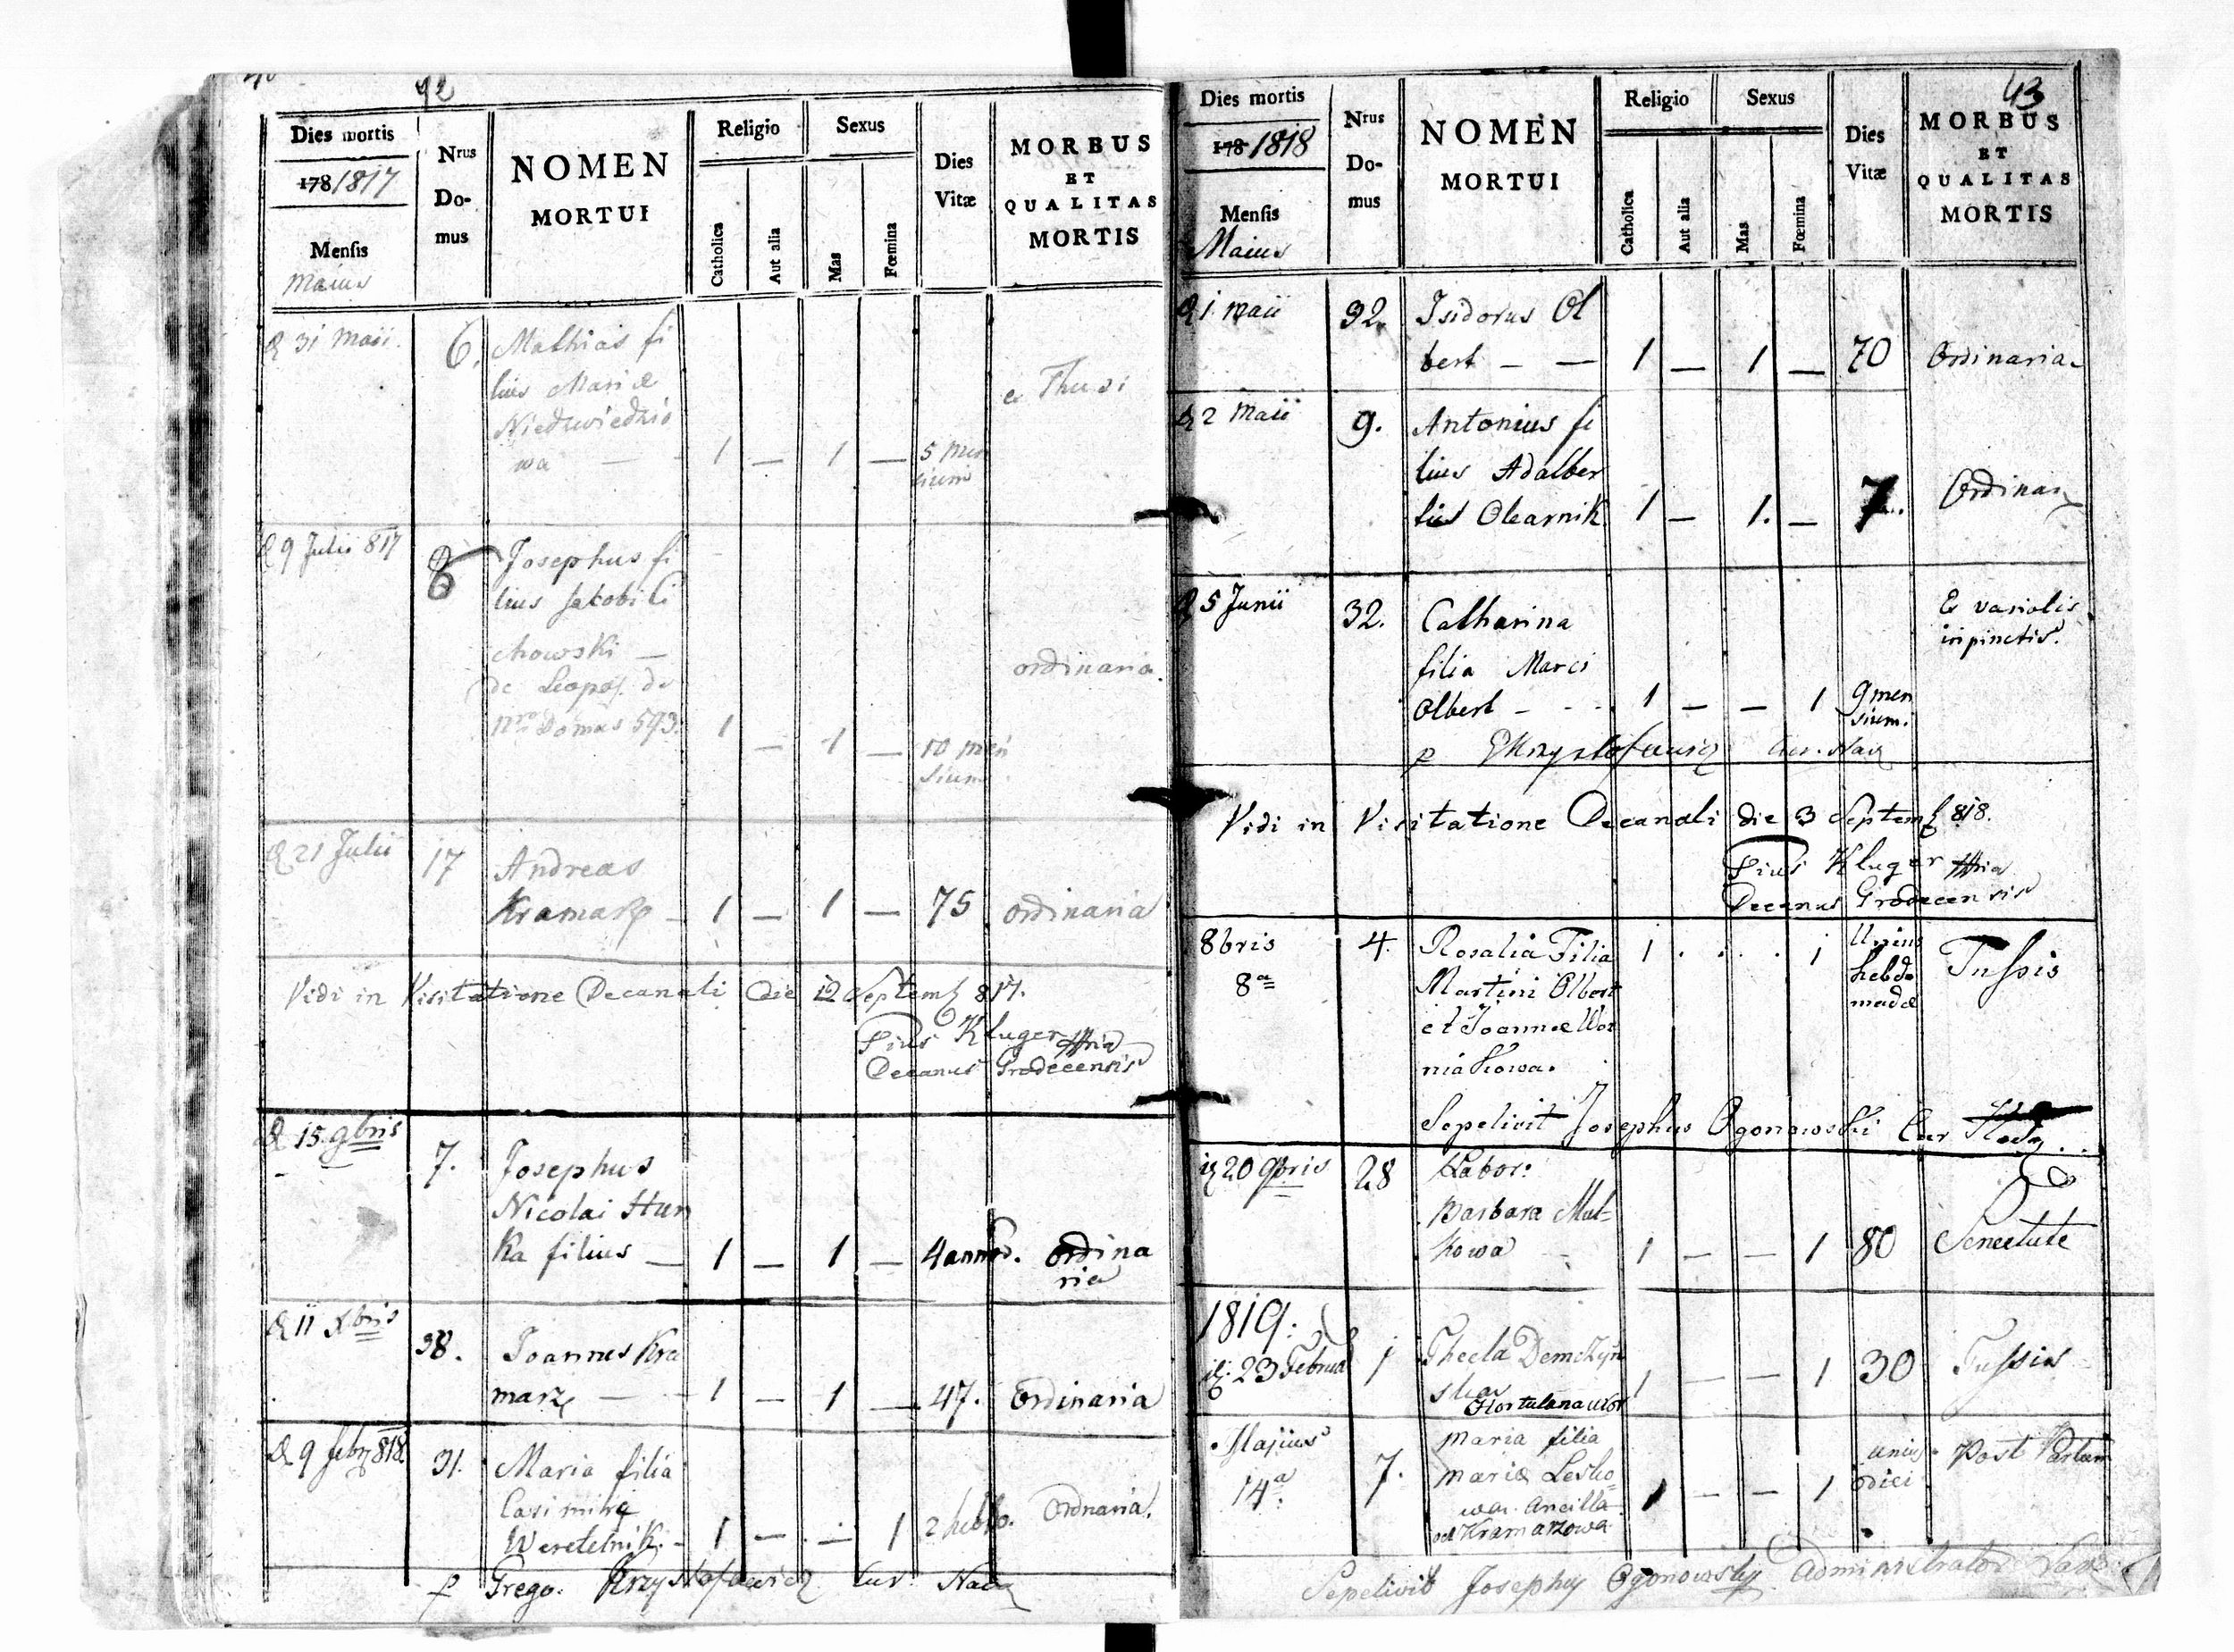 92
Dies mortis
178 1817
Mensis
Maius
Nrus
Do-
mus
NOMEN
MORTUI
Religio
Catholica
Aut alia
Sexus
Mas
Fœmina
Dies
Vitæ
MORBUS
ET
QUALITAS
MORTIS
d 31 Maii. 6. Mathias fi
lius Mariæ
Niedzwiedzio
wa — 1 — 1 — 5 men
sium
e Thussi
d 9 Julii 817 Josephus fi
lius Jakobi Ci
chowski —
de Leopol. de
Nro Domus 593. 1 — 1 — 10 men
sium
ordinaria.
d 21 Julii 17 Andreas
Kramarz — 1 — 1 — 75 ordinaria
Vidi in Visitatione Decanali die 12 Septemb 817.
Pius Kluger
Decanus Grodecensis
d 15. 9bris 7. Josephus
Nicolai Hun
ka filius — 1 — 1 — 4 annor. ordina
ria
d 11 Xbris 38. Joannes Kra
marz — 1 — 1 — 47. Ordinaria
d 9 feb 818 31. Maria filia
Casimiri
Weretelnik. 1 — — 1 2 hebdo. Ordnaria.
p Grego. Krzysztofowicz Cur. Nava
43
Dies mortis
178 1818
Mensis
Maius
Nrus
Do-
mus
NOMEN
MORTUI
Religio
Catholica
Aut alia
Sexus
Mas
Fœmina
Dies
Vitæ
MORBUS
ET
QUALITAS
MORTIS
d 1 Maii 32. Isidorus Ol
bert — — 1 — 1 — 70 Ordinaria
d 2 Maii 9. Antonius fi
lius Adalber
tii Olearnik 1 — 1. — 7 Ordinar
d 5 Junii 32. Catharina
filia Marci
Olbert — 1 — — 1 9 men
sium.
E variolis
inpinctis.
p GKrzysztofowicz Cur. Nav
Vidi in Visitatione Decanali die 3 Septemb 818.
Pius Kluger
Decanus Grodecensis
8bris
8a 4. Rosalia Filia 1 . . . 1 Unius
hebdo
madæ
Tussis
Martini Olbert
et Joannæ Woz
niakowa.
Sepelivit Josephus Ogonowski Cur
20 9bris 28 Labor:
Barbara Mal-
kowa 1 — — 1 80 Senectute
1819.
23 Februa 1 Thecla Demczyn
ska
Hortulana uxor 1 — — 1 30 Tussis
Majus
14a. 7. Maria filia
Mariæ Lesko
wa. Ancilla
od Kramarzowa 1 — — 1 unius
diei
Post Partum
Sepelivit Josephus Ogonowsky Administrator